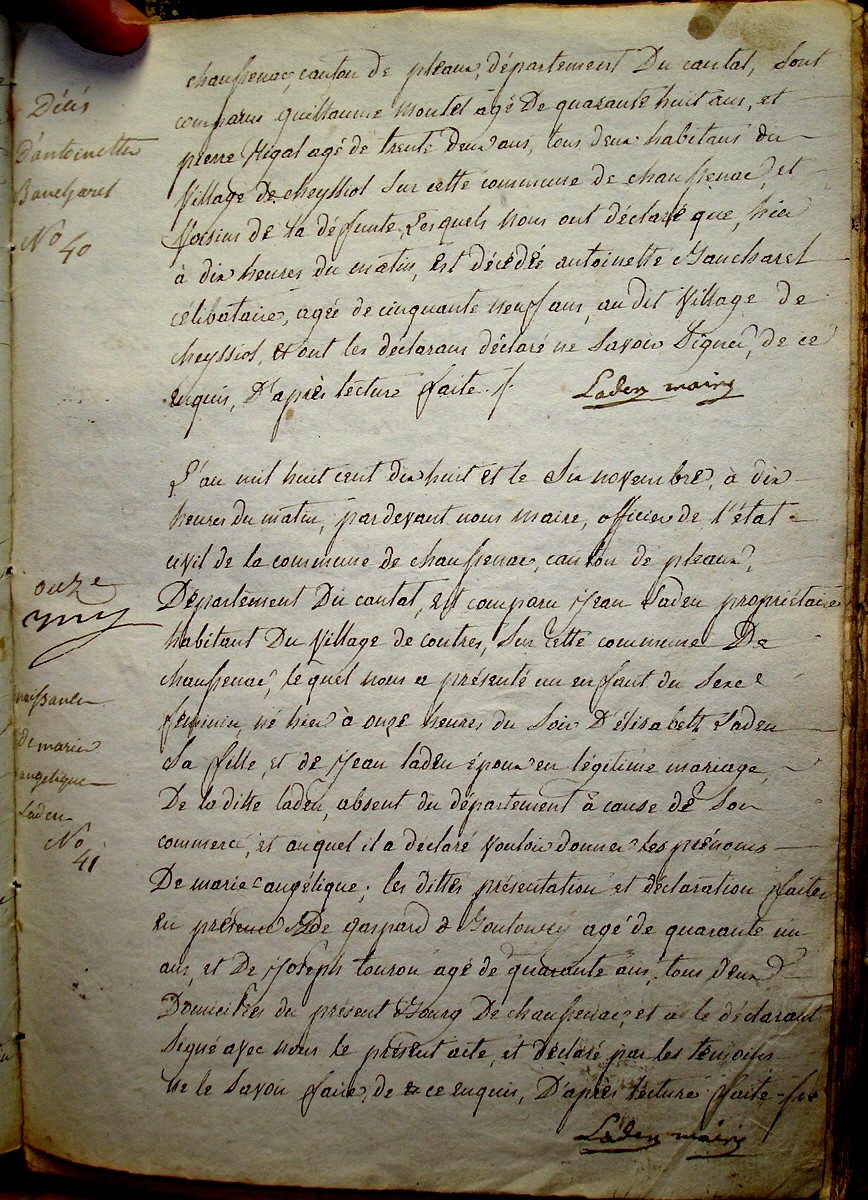 chaussenac, canton de pleaux, département Du cantal, sont
comparus guillaume montet agé De quarante huit ans, et
pierre Rigal agé de trente deux ans, tous deux habitans du
Village de cheyssiol sur cette commune de chaussenac, et
Voisins de la défunte, Lesquels nous ont déclaré que, hier
à dix heures du matin, Est décédée antoinette Bancharel
célibataire, agée de cinquante neuf ans, au dit Village de
cheyssiol, et ont les déclarans déclaré ne Savoir Signer, de ce
enquis, D'après lecture faite ./.
Laden maire
Décès
D'antoinette
Bancharel
No 40
L'an mil huit cent dix huit et le Six novembre, à dix
heures du matin, pardevant nous maire, officier de l'état
civil de la commune de chaussenac, canton de pleaux,
Département Du cantal, est comparu Jean Laden propriétaire
habitant Du Village de contres, Sur cette commune De
chaussenac, lequel nous a présenté un enfant du Sexe
feminin, né hier à onze heures du Soir D'élisabeth Laden
Sa fille, et de Jean laden époux en légitime mariage,
De la ditte laden, absent du département à cause de Son
commerce, et auquel il a déclaré vouloir donner les prénoms
De marie angélique; les dittes présentation et déclaration faites
en présence De gaspard agé de quarante un
ans, et De Joseph touron agé de quarante ans, tous deux
Domiciliés du présent Bourg De chaussenac, et a le déclarant
Signé avec nous le présent acte, et déclaré par les temoins
ne le Savoir faire, de ce enquis, D'après lecture faite
Laden maire
onze
naissance
De marie
angelique
Laden
No
41